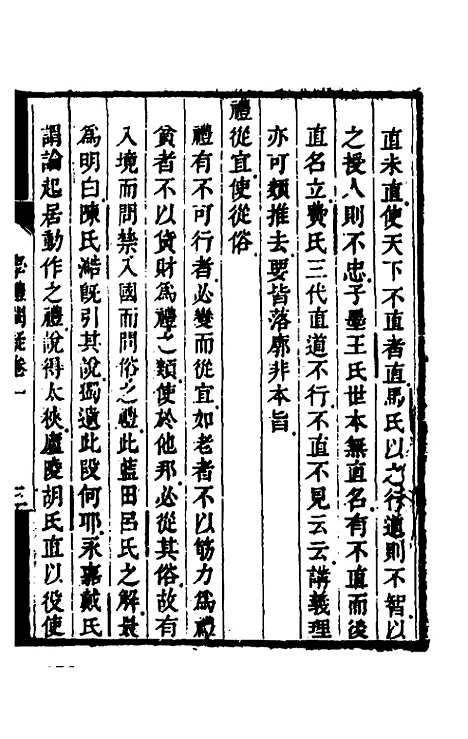 直未直使天下不直者直馬氏以之行道則不智以
之授人則不忠子墨王氏世本無直名有不直而後
直名立費氏三代直道不行不直不見云云講義理
亦可類推去要皆落廓非本旨
禮從宜使從俗
禮有不可行者必變而從宜如老者不以筋力爲禮
貧者不以貨財爲禮之類使於他邦必從其俗故有
入境而問禁入國而問俗之禮此藍田呂氏之解最
爲明白陳氏澔既引其說獨遺此段何耶永嘉戴氏
謂論起居動作之禮說得太狹廬陵胡氏直以役使
禮問疑卷一
三